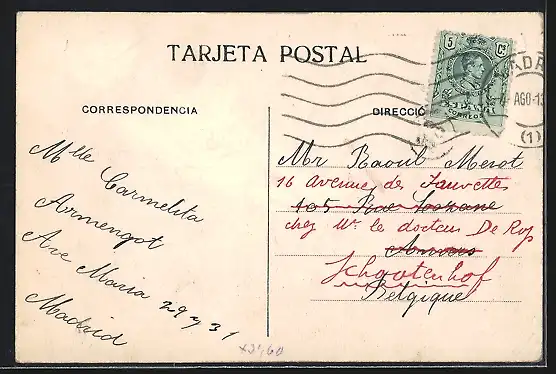 TARJETA POSTAL
CORRESPONDENCIA
DIRECCIÓ
5 Cs
ESPAÑA
CORREOS
MADR
AGO-13
(1)
Mlle Carmelita
Armengot
Ave Maria 29 y 31
Madrid
Mr Raoul Merot
16 Avenue des Fauvettes
105 Rue
chez Mr. le docteur De Rop
Anvers
Schootenhof
Belgique